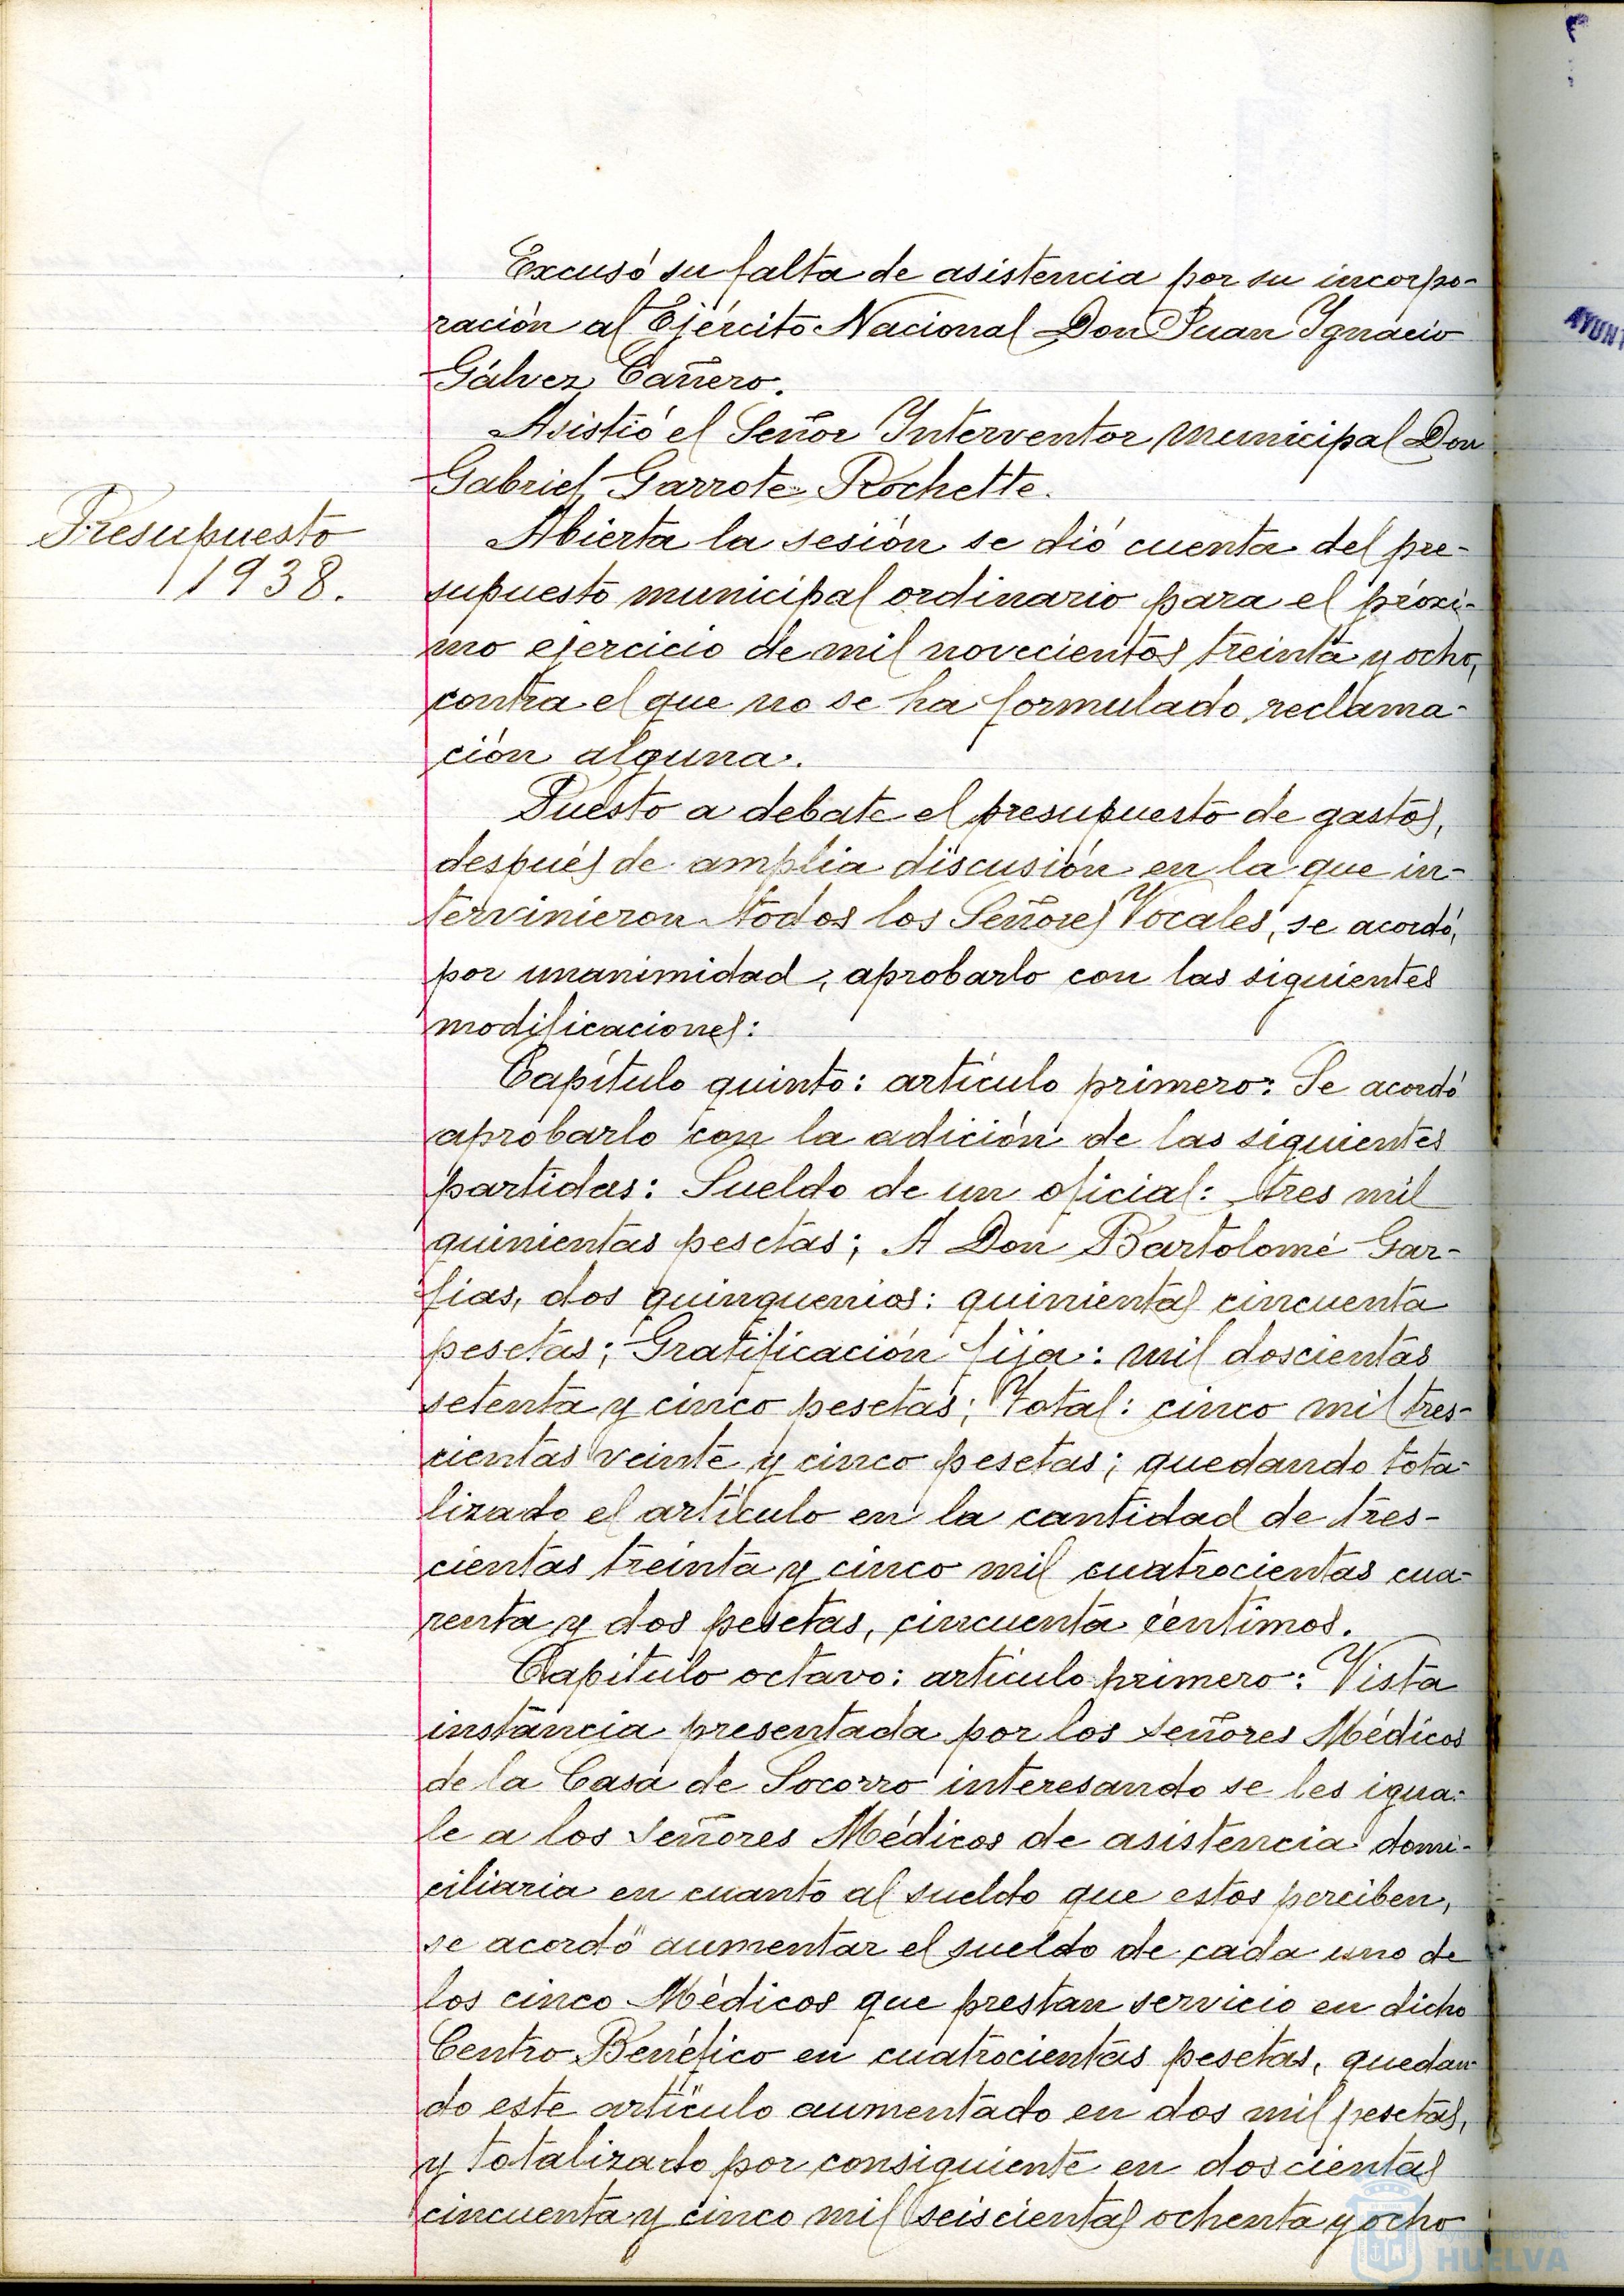 Excusó su falta de asistencia por su incorpo-
ración al Ejército Nacional Don Juan Ignacio
Gálvez Cañero.
Asistió el Señor Interventor municipal Don
Gabriel Garrote Rochette.
Presupuesto
1938.
Abierta la sesión se dió cuenta del pre-
supuesto municipal ordinario para el próxi-
mo ejercicio de mil novecientos treinta y ocho,
contra el que no se ha formulado reclama-
ción alguna.
Puesto a debate el presupuesto de gastos,
después de amplia discusión en la que in-
tervinieron todos los Señores Vocales, se acordó,
por unanimidad, aprobarlo con las siguientes
modificaciones:
Capítulo quinto: artículo primero: Se acordó
aprobarlo con la adición de las siguientes
partidas: Sueldo de un oficial: tres mil
quinientas pesetas; A Don Bartolomé Gar-
fias, dos quinquenios: quinientas cincuenta
pesetas; Gratificación fija: mil doscientas
setenta y cinco pesetas; Total: cinco mil tres-
cientas veinte y cinco pesetas; quedando tota-
lizado el artículo en la cantidad de tres-
cientas treinta y cinco mil cuatrocientas cua-
renta y dos pesetas, cincuenta céntimos.
Capítulo octavo: artículo primero: Vista
instancia presentada por los señores Médicos
de la Casa de Socorro interesando se les igua-
le a los señores Médicos de asistencia domi-
ciliaria en cuanto al sueldo que estos perciben,
se acordó aumentar el sueldo de cada uno de
los cinco Médicos que prestan servicio en dicho
Centro Benéfico en cuatrocientas pesetas, quedan-
do este artículo aumentado en dos mil pesetas,
y totalizado por consiguiente en doscientas
cincuenta y cinco mil seiscientas ochenta y ocho
AYUNT
HUELVA